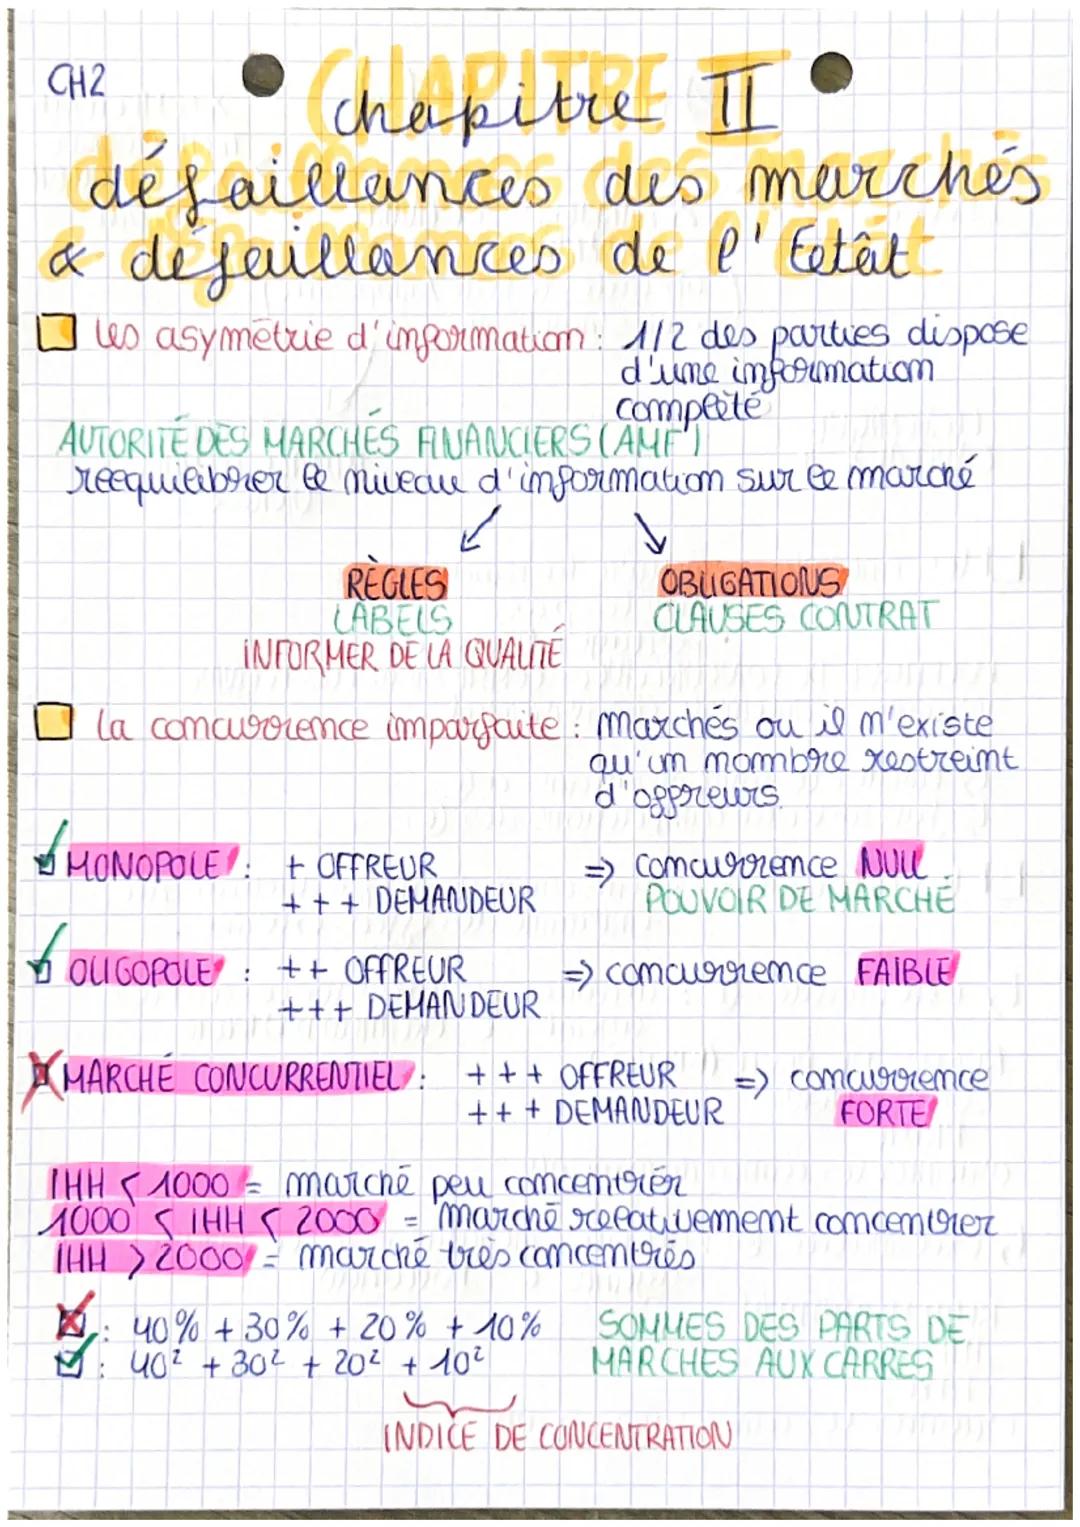 CH2
chapitre II
défaillances des marchés
& défaillances de l'Eetât
les asymétrie d'information : 1/2 des parties dispose
d'une information
complèté
AUTORITÉ DES MARCHÉS FINANCIERS (AMF)
reequilibrer le niveau d'information sur le marché
RÈGLES
OBLIGATIONS
LABELS
CLAUSES CONTRAT
INFORMER DE LA QUALITÉ
la concurrence imparfaite : marchés ou il n'existe
qu'un nombre restreint
d'offreurs.
MONOPOLE : + OFFREUR => concurrence NULL
+ + + DEMANDEUR POUVOIR DE MARCHÉ
OLIGOPOLE : ++ OFFREUR => concurrence FAIBLE
+++ DEMANDEUR
MARCHÉ CONCURRENTIEL : + + + OFFREUR => concurrence
+ + + DEMANDEUR FORTE
IHH < 1000 = marché peu concentrér
1000 < IHH < 2000 = marché relativement concentrer
IHH > 2000 = marché très concentrés
: 40% + 30% + 20% + 10% SOMMES DES PARTS DE
: 40² + 30² + 20² + 10² MARCHES AUX CARRES
INDICE DE CONCENTRATION